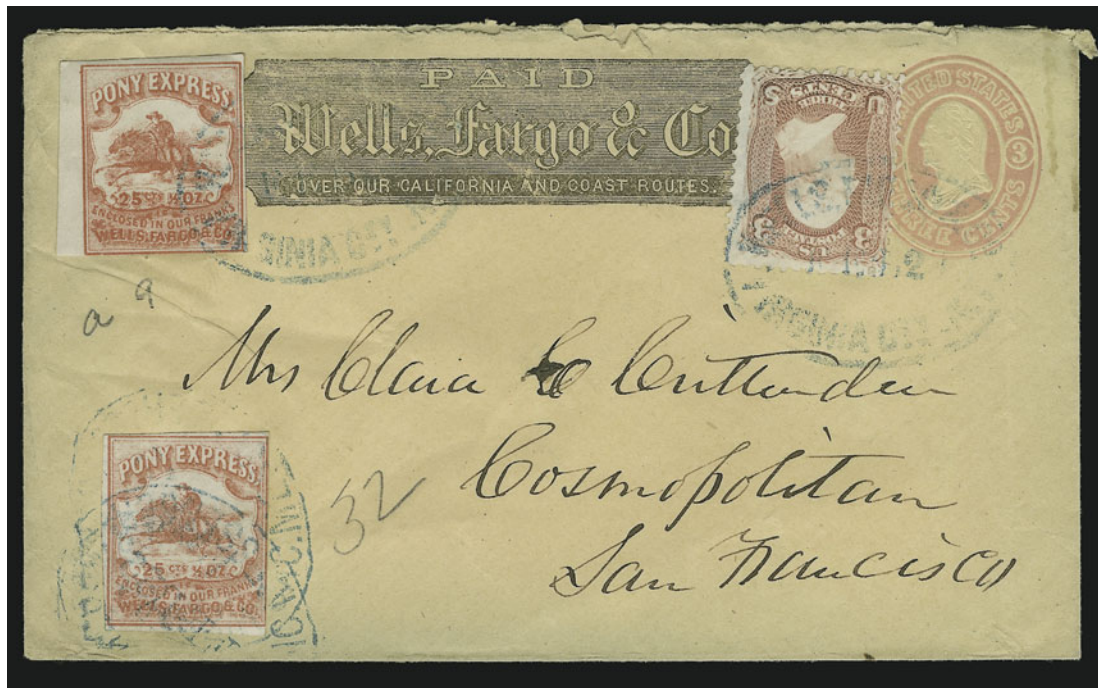 PONY EXPRESS.
25 cts ½ OZ.
ENCLOSED IN OUR FRANKS
WELLS, FARGO & CO.
PAID
Wells, Fargo & Co
OVER OUR CALIFORNIA AND COAST ROUTES.
U CENTS S
3 U.S. POSTAGE 3
UNITED STATES
3
THREE CENTS
VIRGINIA CITY
a a
Mrs Clara C Crittenden
Cosmopolitan
San Francisco
32
PONY EXPRESS.
25 CTS ½ OZ.
ENCLOSED IN OUR FRANKS
WELLS, FARGO & CO.